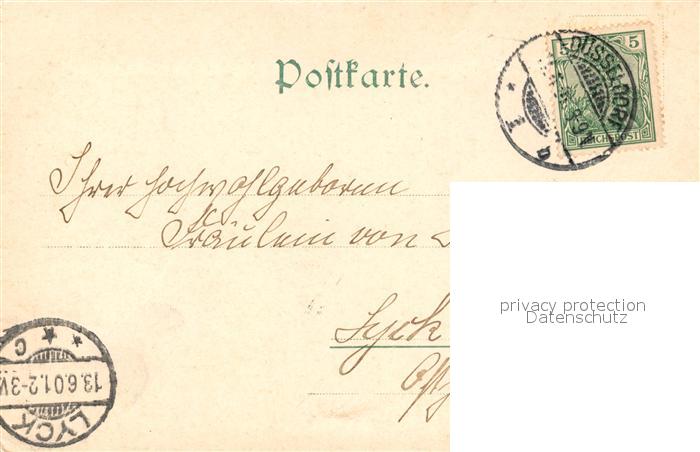 Postkarte.
5 5
REICHSPOST
DÜSSELDORF
* 1 n
Ihrer Hochwohlgeboren
Fräulein von
Lyck
privacy protection
Datenschutz
* * c
13.6.01.2-3V.
LYCK